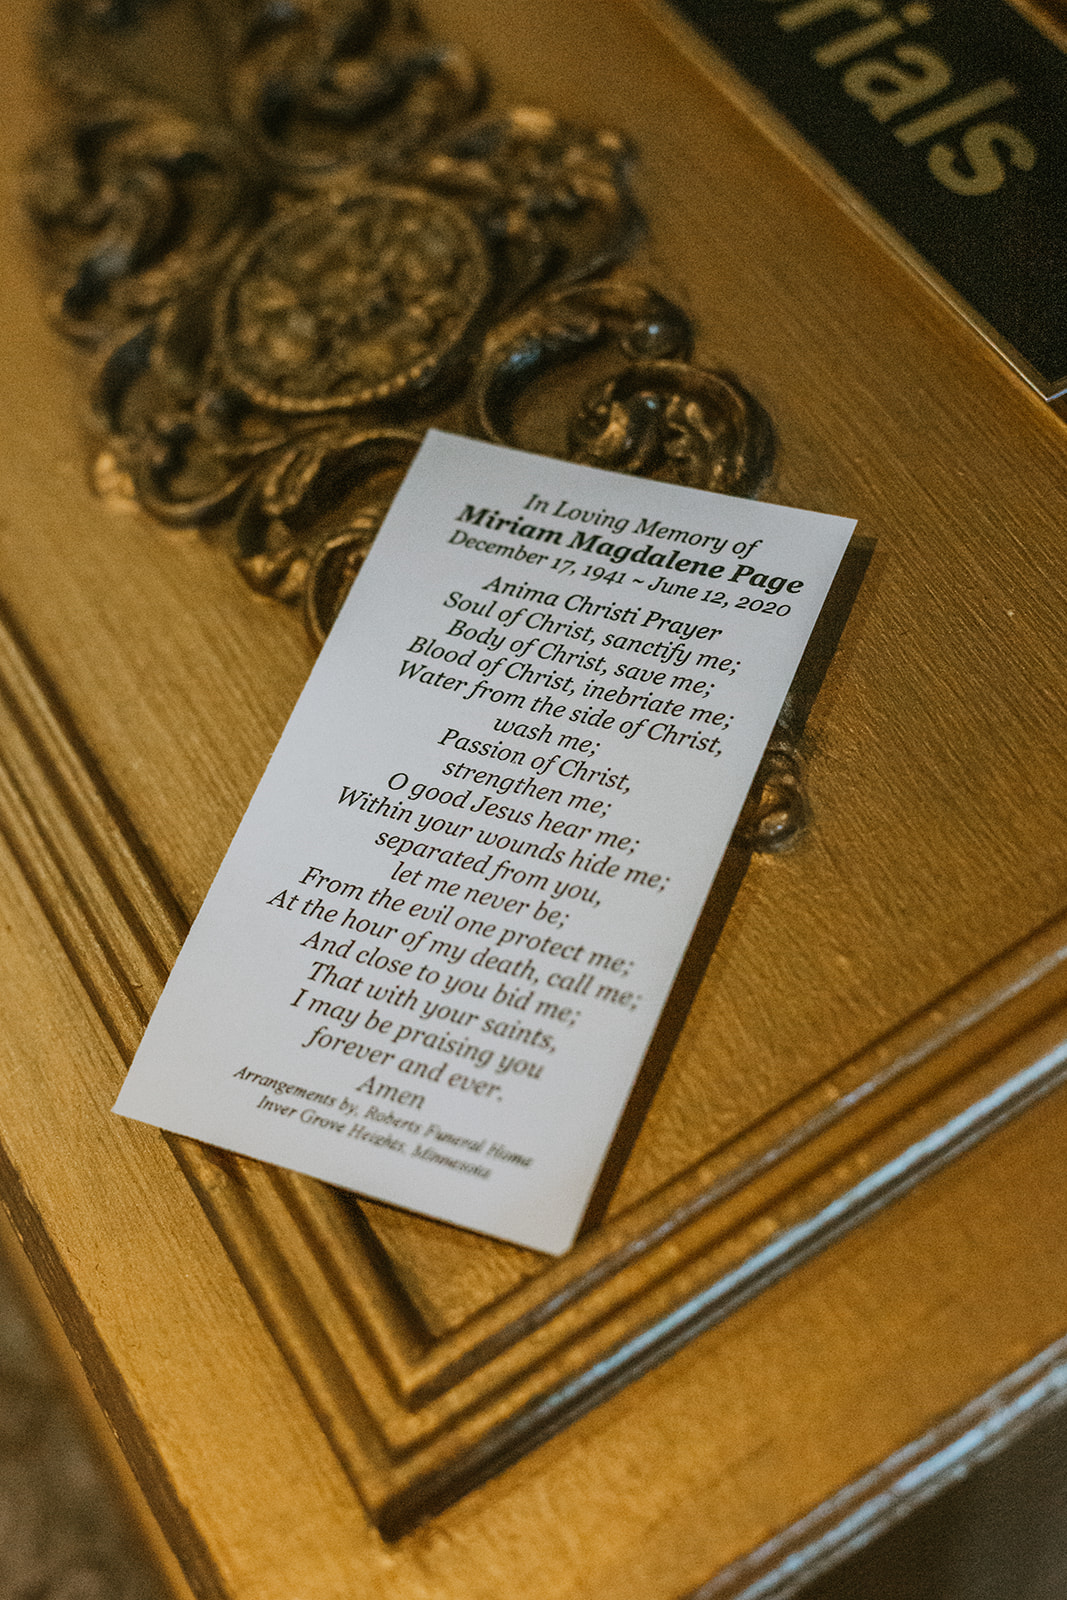 rials
In Loving Memory of
Miriam Magdalene Page
December 17, 1941 ~ June 12, 2020
Anima Christi Prayer
Soul of Christ, sanctify me;
Body of Christ, save me;
Blood of Christ, inebriate me;
Water from the side of Christ,
wash me;
Passion of Christ,
strengthen me;
O good Jesus hear me;
Within your wounds hide me;
separated from you,
let me never be;
From the evil one protect me;
At the hour of my death, call me;
And close to you bid me;
That with your saints,
I may be praising you
forever and ever.
Amen
Arrangements by, Roberts Funeral Home
Inver Grove Heights, Minnesota